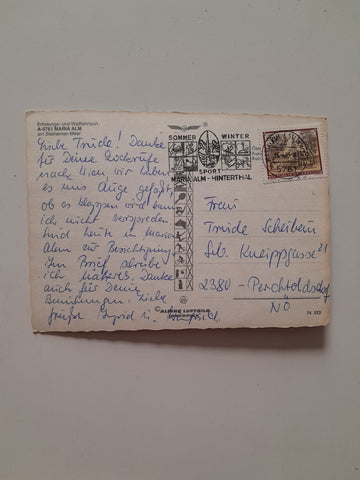 Erholungs- und Wallfahrtsort
A-5761 MARIA ALM
am Steinernen Meer
Liebe Trude! Danke
für Deine
nach Wien, wir haben
es uns Auge gefaßt,
ob es klappen wird kann
ich nicht versprechen.
Sind heute in Maria
Alm zur Besichtigung
Im Brief schreibe
ich näheres, Danke
auch für Deine
Bemühungen. Liebe
Ingrid u.
SOMMER WINTER
SPORT
MARIA ALM - HINTERTHAL
5761
Frau
Trude Scheiben
Seb. Kneippgasse 21
2380 - Perchtoldsdorf
NÖ
© ALPINE LUFTBILD
INNSBRUCK